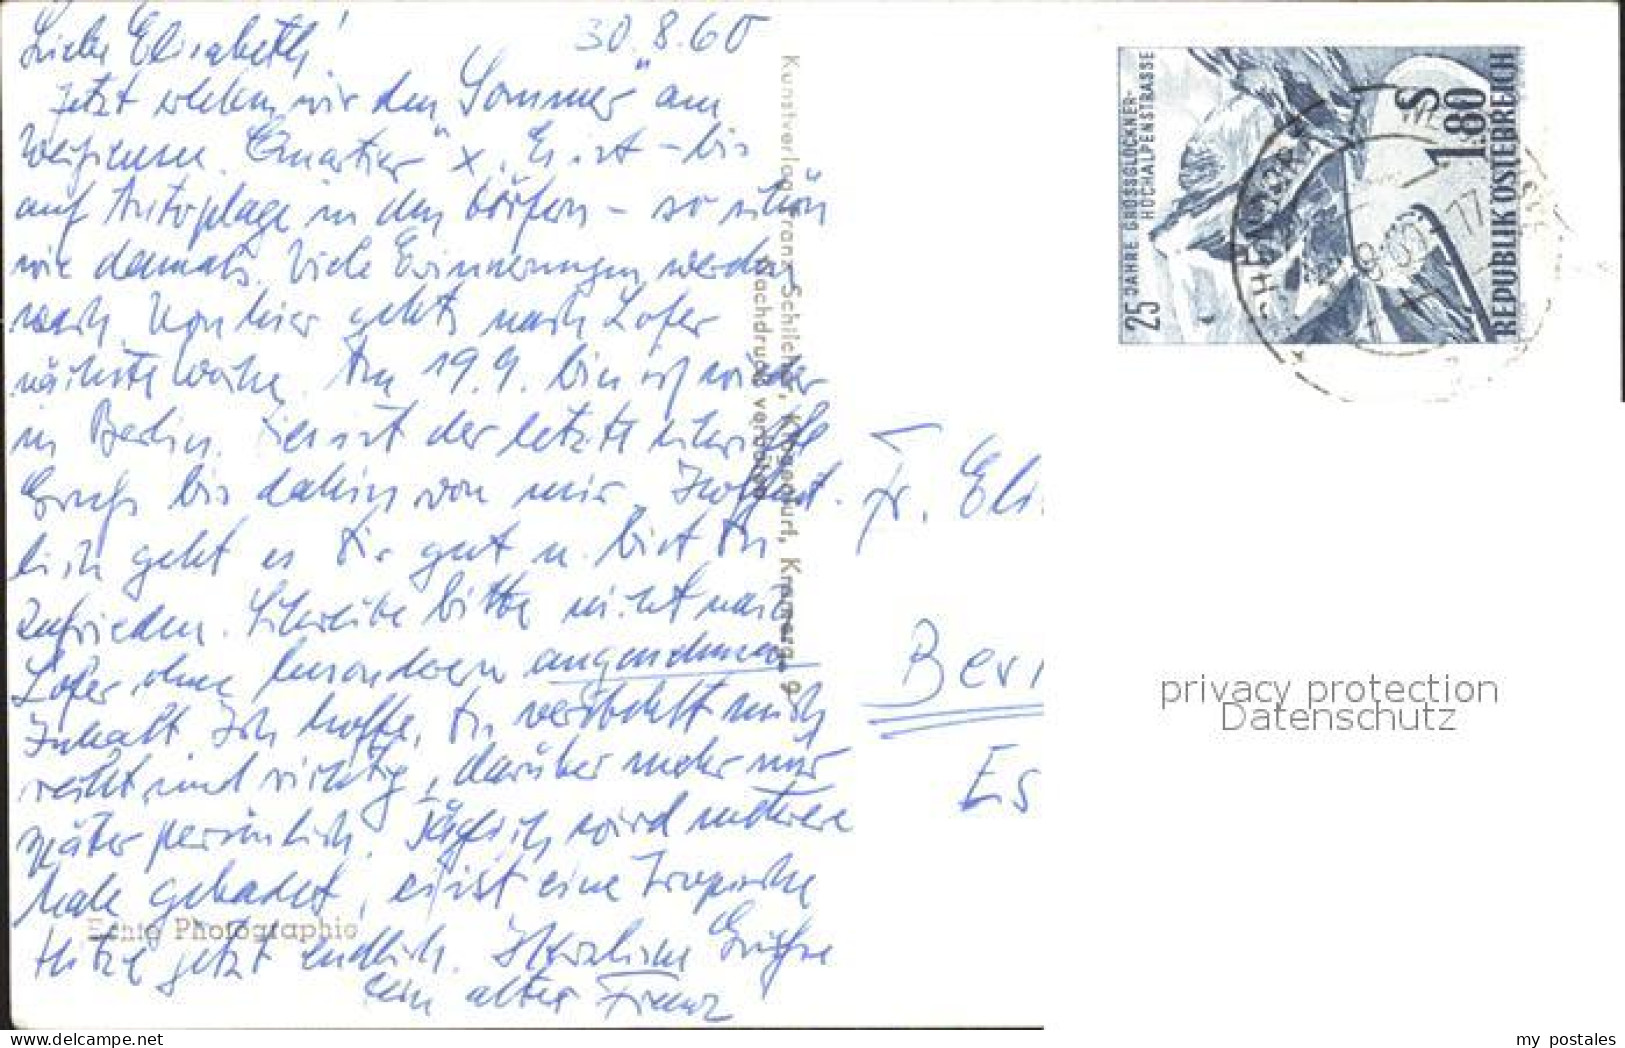 30.8.60
Liebe Elisabeth!
Jetzt erleben wir den "Sommer" am
Weißensee. Quartier x. Es ist – bis
auf Autoplage in den Dörfern – so schön
wie damals. Viele Erinnerungen werden
wach. Von hier geht's nach Lofer
nächste Woche. Am 19.9. bin ich wieder
in Berlin. Dies ist der letzte schriftl.
Gruß bis dahin von mir. Hoffent-
lich geht es Dir gut u. bist Du
zufrieden. Schreibe bitte nicht nach
Lofer ohne besonderen angenehmen
Inhalt. Ich hoffe, Du verstehst mich
recht und richtig, darüber mehr nur
später persönlich. Täglich wird mehrere
Male gebadet, es ist eine Tropische
Hitze jetzt endlich. Herzliche Grüße
Dein alter Franz
Echte Photographie
Kunstverlag Franz Schilcher, Klagenfurt, Kramerg. 9
Nachdruck verboten
25 JAHRE GROSSGLOCKNER-
HOCHALPENSTRASSE
S 1.80
REPUBLIK ÖSTERREICH
Fr. Eli
Ber
Es
privacy protection
Datenschutz
my postales